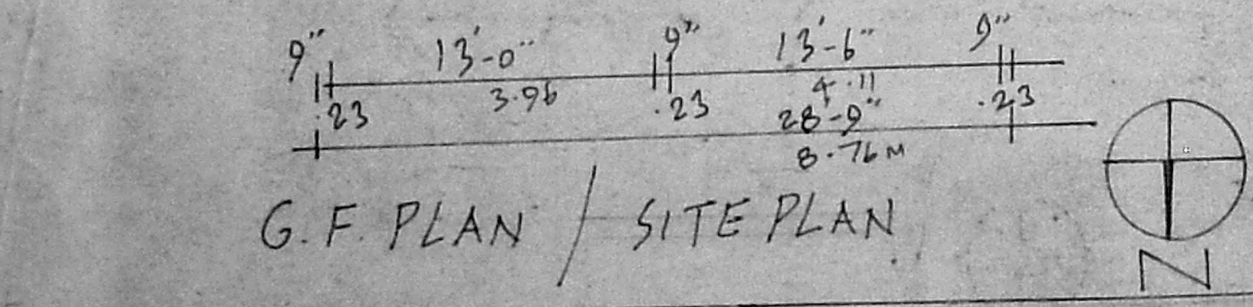 9" 13'-0" 9" 13'-6" 9"
.23 3.96 .23 4.11 .23
28-9"
8.76 M
G.F. PLAN / SITE PLAN
N